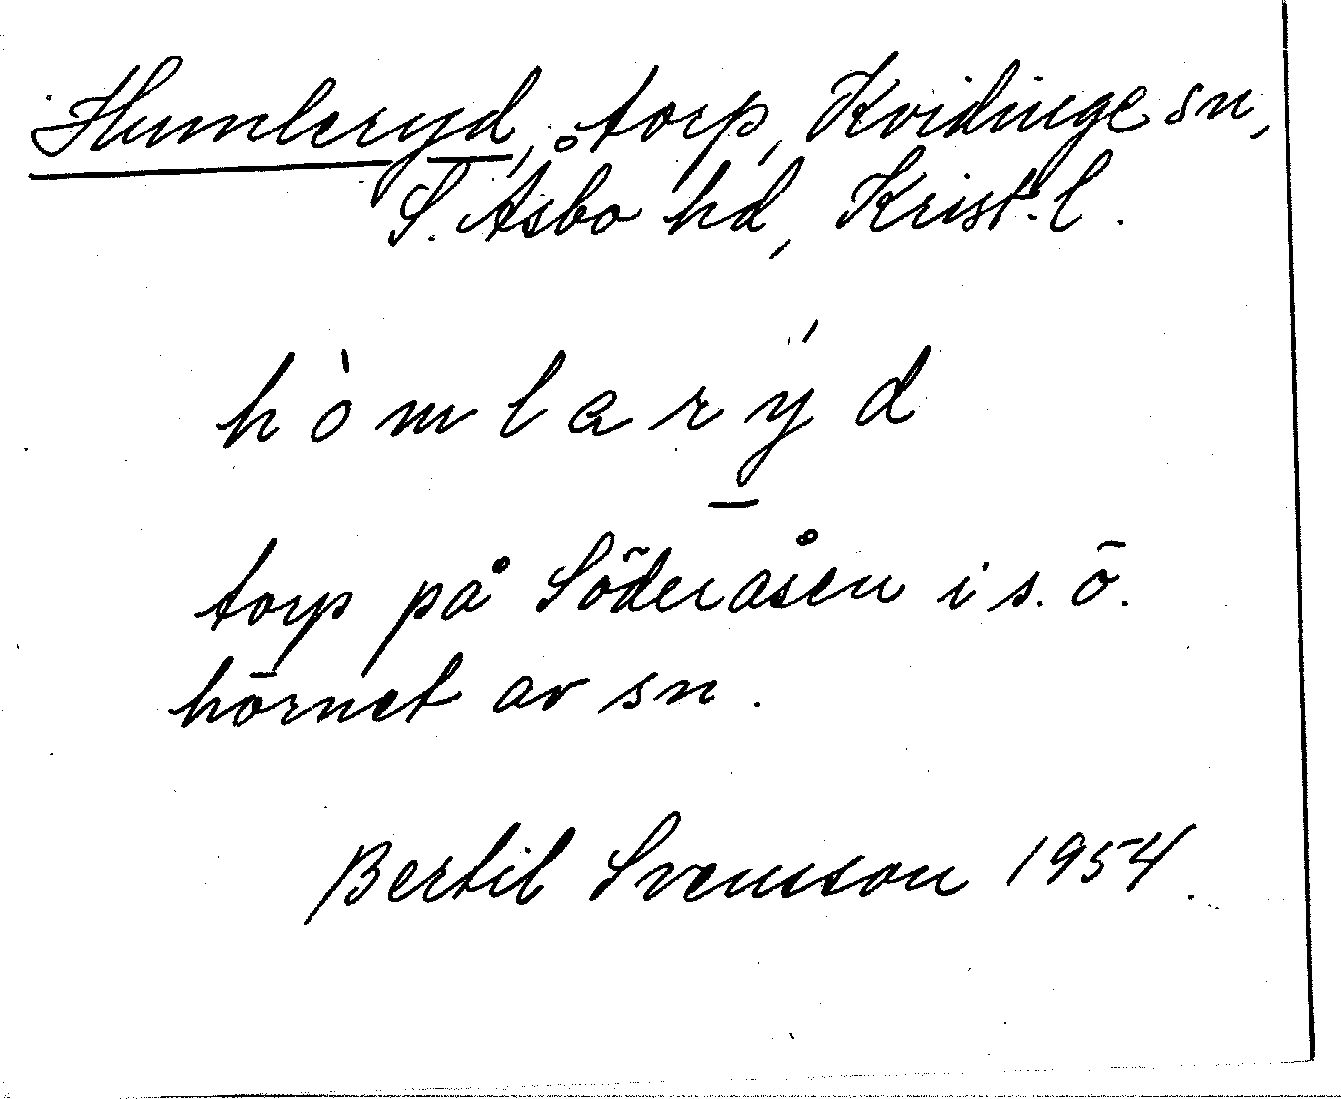 Humleryd, torp, Kvidinge sn,
S. Åsbo hd, Krist. l.
hòmlarýd
torp på Söderåsen i s. ö.
hörnet av sn.
Bertil Svensson 1954.